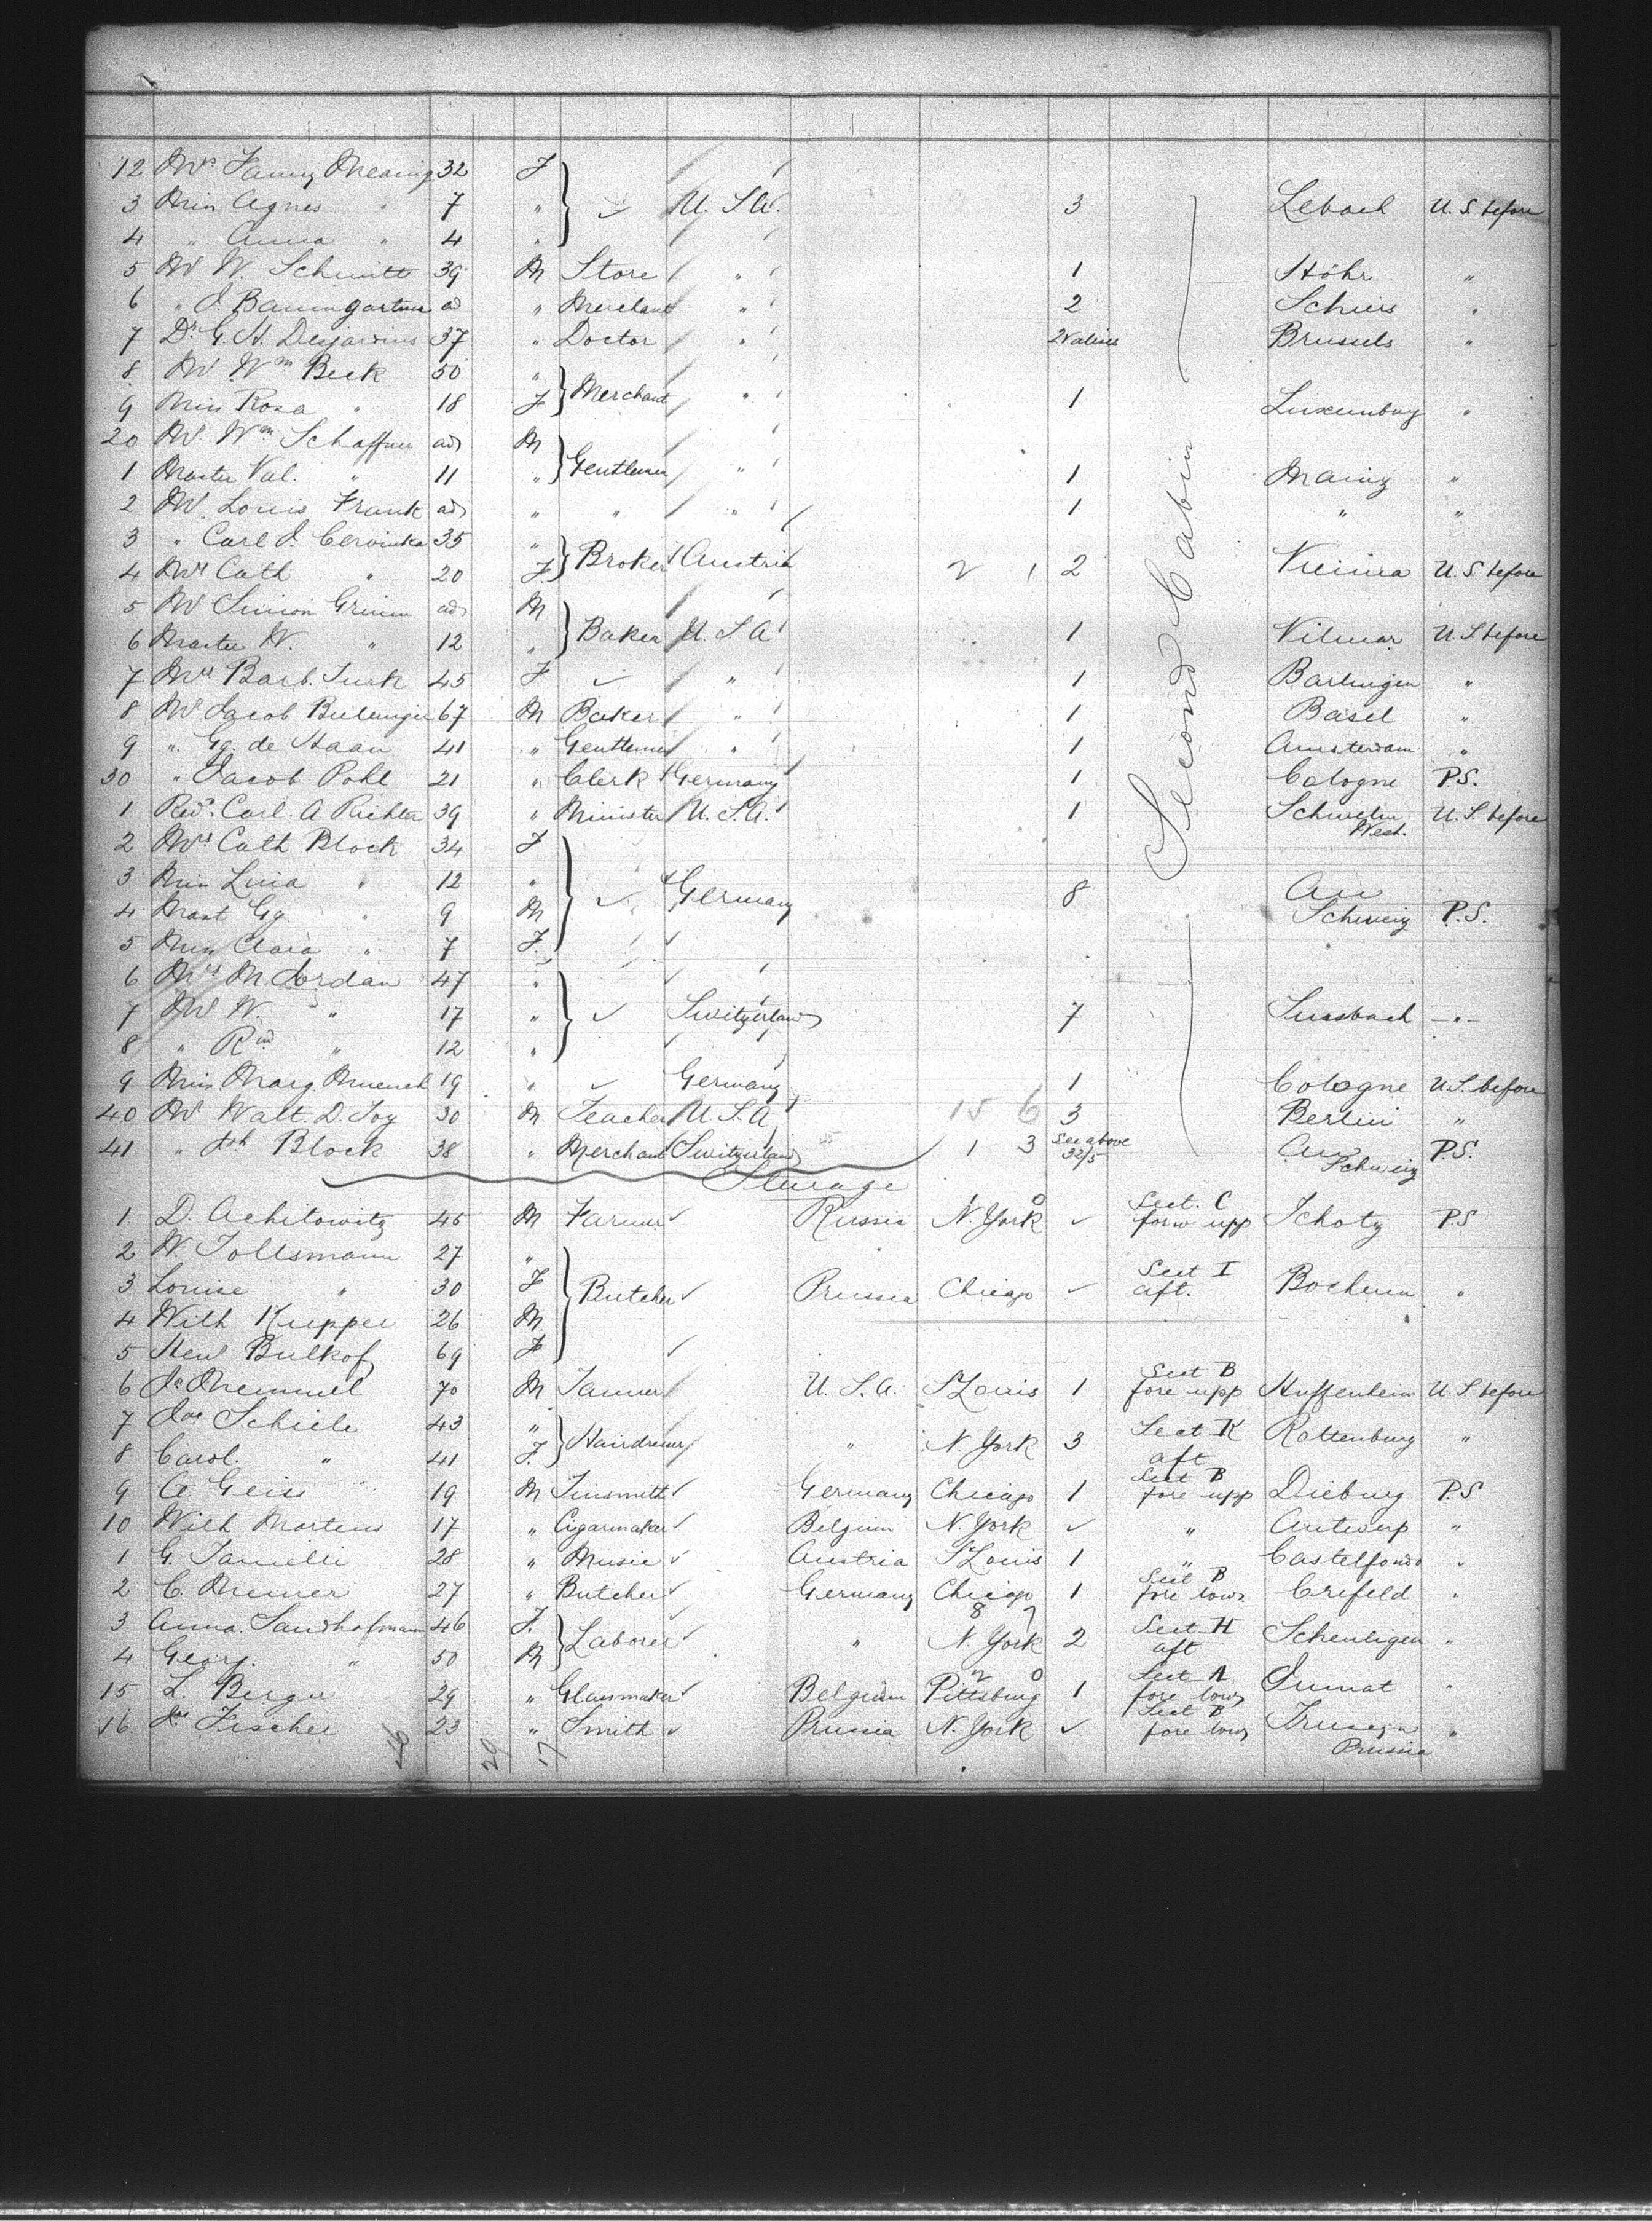 12 Mrs Fanny Mearing 32 F
3 Miss Agnes " 7 " ✓ U. S. A. 3 Lebach U. S. before
4 " Anna " 4 "
5 Mr W. Schmitt 39 M Store " 1 Höhr "
6 " J. Baumgartner ad " Merchant " 2 Schiers "
7 Dr G. H. Desjardins 37 " Doctor " 2 Valises Brussels "
8 Mr Wm Beck 50 " Merchant " 1 Luxemburg "
9 Miss Rosa " 18 F
20 Mr. Wm Schaffner ad M Gentlemen " 1 Mainz "
1 Master Val. " 11 "
2 Mr. Louis Frank ad " " " 1 " "
3 " Carl J. Cervinka 35 " Broker Austria 2 1 2 Vienna U. S before
4 Mrs Cath " 20 F.
5 Mr Simon Grimm ad M Baker U. S A 1 Vilmar U. S before
6 Master W. " 12 "
7 Mrs Barb. Turk 45 F ✓ " 1 "
8 Mr Jacob 67 M Baker " 1 Basel "
9 " Gg. de Haan 41 " Gentleman " 1 Amsterdam "
30 " Jacob Pohl 21 " Clerk Germany 1 Cologne P.S.
1 Revd. Carl. A Richter 39 " Minister U. S. A. 1 Schwelm West. U. S. before
2 Mrs Cath Block 34 F
3 Miss Lina " 12 " ✓ Germany 8 Au
4 Mast Gg. " 9 M Schweiz P.S.
5 Miss Clara " 7 F.
6 Mrs M. Jordan 47 "
7 Mr W. " 17 " ✓ Switzerland 7 — " —
8 " Rud " 12 "
9 Miss Marg Muench 19 " ✓ Germany 1 Cologne U S. before
40 Mr Walt. D. Toy 30 M Teacher U. S. A 15 6 3 Berlin "
41 " Jch Block 38 " Merchant Switzerland 1 3 See above 32/5 Au Schweiz P.S.
Second Cabin
Steerage
1. D. Achitowitz 45 M Farmer ✓ Russia N. York 0 ✓ Sect. C forw upp Schoty P.S
2 W. Tollsmann 27 "
3 Louise " 30 F Butcher ✓ Prussia Chicago ✓ Sect I aft. Bochum "
4 Wilh Kupper 26 M
5 Hen Bulkof 69 F ✓
6 Jn Memmel 70 M Tanner U. S. A. St Louis 1 Sect B fore upp Huffenheim U. S. before
7 Jos Schiele 43 " Hairdresser " N. York 3 Sect K aft Rottenburg "
8 Carol. " 41 F.
9 A Geiss 19 M Tinsmith ✓ Germany Chicago 1 Sect B fore upp Dieburg P.S
10 Wilh Martens 17 " Cigarmaker ✓ Belgium N. York ✓ " Antwerp "
1 G. 28 " Music ✓ Austria St Louis 1 " Castelfondo "
2 C. 27 " Butcher ✓ Germany Chicago 1 Sect B fore low Crefeld "
3 Anna. Sandhofmann 46 F. Laborer ✓ " 8 7 N. York 2 Sect H aft "
4 Georg. " 50 M
15 L. Berger 29 " Glassmaker ✓ Belgium 2 0 Pittsburg 1 Sect A fore low Jumet "
16 Jos Fischer 23 " Smith ✓ Prussia N. York ✓ Sect B fore low Prussia "
26 29 17